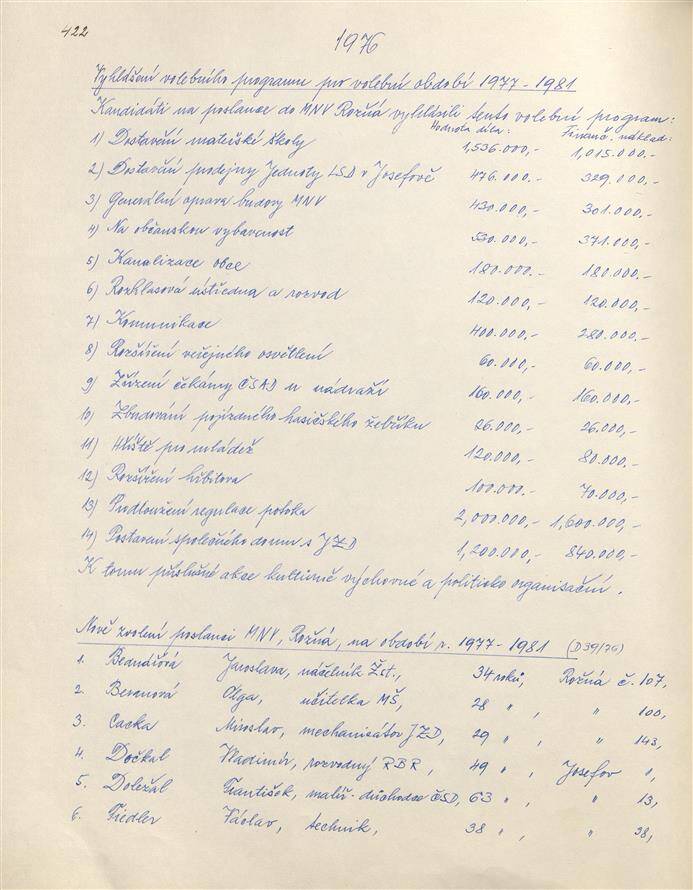 422
1976
Vyhlášení volebního programu pro volební období 1977 - 1981
Kandidáti na poslance do MNV Rožná vyhlásili tento volební program:
Hodnota díla: Finanč. náklad:
1) Dostavění mateřské školy 1,536.000,- 1,015.000.-
2) Dostavění prodejny Jednoty LSD v Josefově 476.000,- 329.000.-
3) Generální oprava budovy MNV 430.000,- 301.000.-
4) Na občanskou vybavenost 530.000,- 371.000.-
5) Kanalizace obce 180.000.- 180.000.-
6) Rozhlasová ústředna a rozvod 120.000,- 120.000,-
7) Komunikace 400.000,- 280.000.-
8) Rozšíření veřejného osvětlení 60.000,- 60.000,-
9) Zřízení čekárny ČSAD u nádraží 160.000,- 160.000,-
10) Zbudování pojízdného hasičského žebříku 26.000,- 26.000,-
11) Hřiště pro mládež 120.000,- 80.000.-
12) Rozšíření hřbitova 100.000.- 70.000.-
13) Prodloužení regulace potoka 2,000.000,- 1,600.000,-
14) Postavení společného domu s JZD 1,200.000,- 840.000.-
K tomu příslušné akce kulturně výchovné a politicko organisační.
Nově zvolení poslanci MNV, Rožná, na období r. 1977 - 1981 (D39/76)
1. Jaroslava, náčelník Žst., 34 roků, Rožná č. 107,
2. Beranová Olga, učitelka MŠ, 28 " , " 100,
3. Cacka Miroslav, mechanisátor JZD, 29 " , " 143,
4. Dočkal Vladimír, rozvodný RBR, 49 " , Josefov " ,
5. Doležal František, malíř-důchodce ČSD, 63 " , " 13,
6. Fiedler Václav, technik, 38 " , " 38,